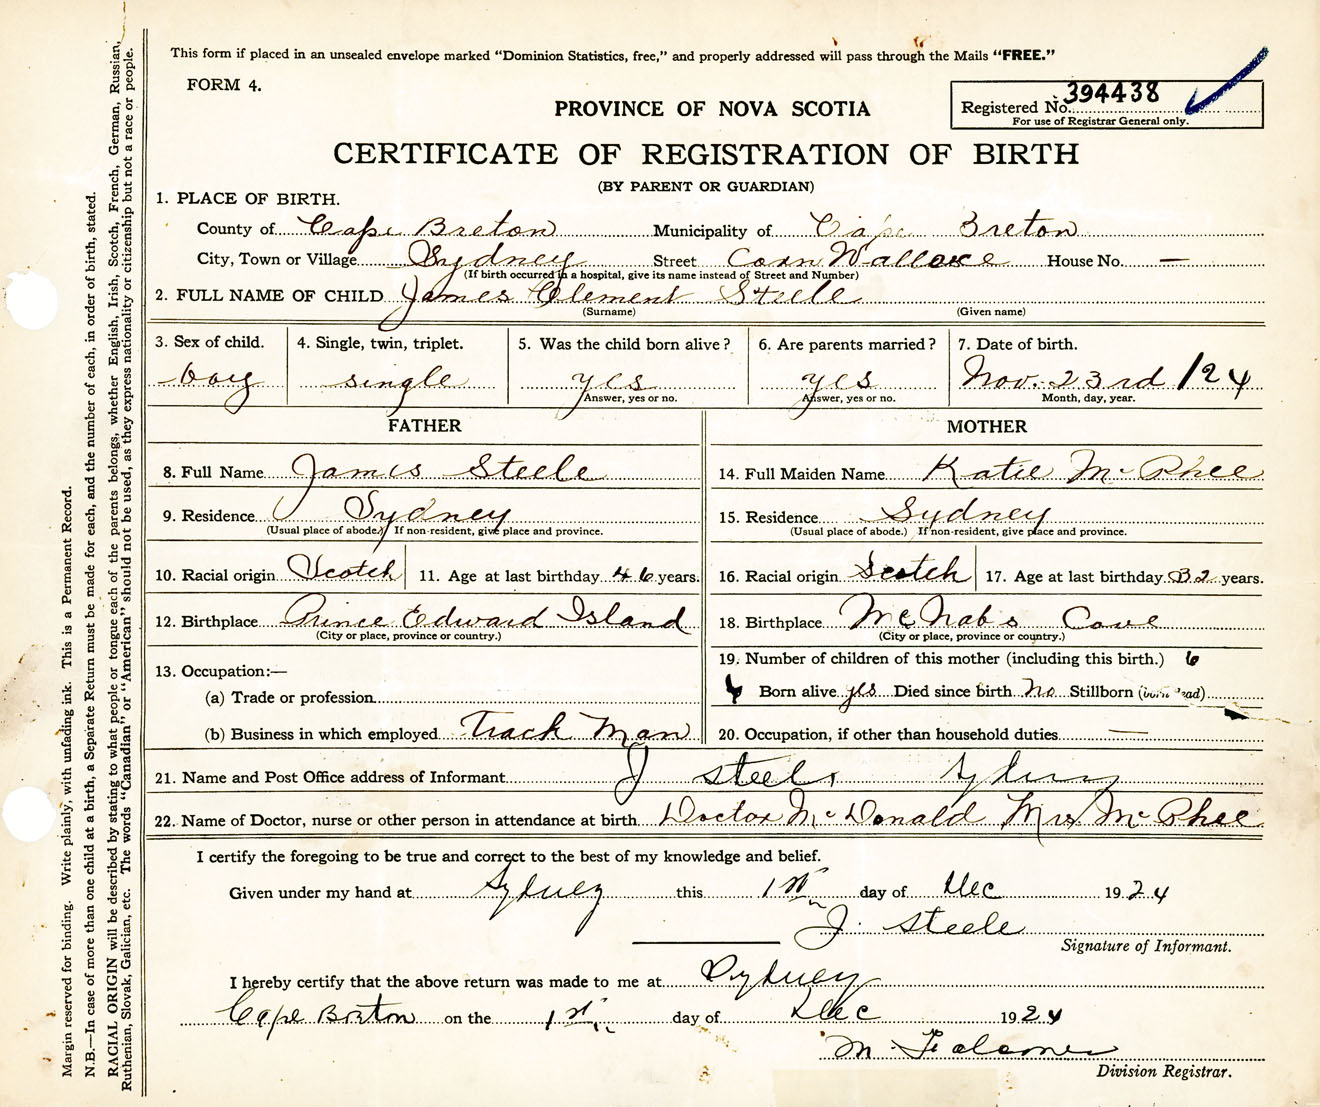 This form if placed in an unsealed envelope marked "Dominion Statistics, free," and properly addressed will pass through the Mails "FREE."
FORM 4.
Registered No. 394438
For use of Registrar General only.
PROVINCE OF NOVA SCOTIA
CERTIFICATE OF REGISTRATION OF BIRTH
(BY PARENT OR GUARDIAN)
1. PLACE OF BIRTH.
County of Cape Breton Municipality of Cape Breton
City, Town or Village Sydney Street Corn Wallace House No. —
(If birth occurred in a hospital, give its name instead of Street and Number)
2. FULL NAME OF CHILD James Clement Steele
(Surname) (Given name)
3. Sex of child. 4. Single, twin, triplet. 5. Was the child born alive? 6. Are parents married? 7. Date of birth.
boy single yes yes Nov. 23rd /24
Answer, yes or no. Answer, yes or no. Month, day, year.
FATHER
8. Full Name James Steele
9. Residence Sydney
(Usual place of abode.) If non-resident, give place and province.
10. Racial origin Scotch 11. Age at last birthday 46 years.
12. Birthplace Prince Edward Island
(City or place, province or country.)
13. Occupation:—
(a) Trade or profession
(b) Business in which employed Track Man
MOTHER
14. Full Maiden Name Katie Mc Phee
15. Residence Sydney
(Usual place of abode.) If non-resident, give place and province.
16. Racial origin Scotch 17. Age at last birthday 32 years.
18. Birthplace McNabs Cove
(City or place, province or country.)
19. Number of children of this mother (including this birth.) 6
6 Born alive yes Died since birth no Stillborn (born dead)
20. Occupation, if other than household duties —
21. Name and Post Office address of Informant J Steele Sydney
22. Name of Doctor, nurse or other person in attendance at birth Doctor Mc Donald Mrs Mc Phee
I certify the foregoing to be true and correct to the best of my knowledge and belief.
Given under my hand at Sydney this 1st day of Dec 1924
J. Steele
Signature of Informant.
I hereby certify that the above return was made to me at Sydney
Cape Breton on the 1st day of Dec 1924
M.
Division Registrar.
Margin reserved for binding. Write plainly, with unfading ink. This is a Permanent Record.
N.B.—In case of more than one child at a birth, a Separate Return must be made for each, and the number of each, in order of birth, stated.
RACIAL ORIGIN will be described by stating to what people or tongue each of the parents belongs, whether English, Irish, Scotch, French, German, Russian,
Ruthenian, Slovak, Galician, etc. The words "Canadian" or "American" should not be used, as they express nationality or citizenship but not a race or people.